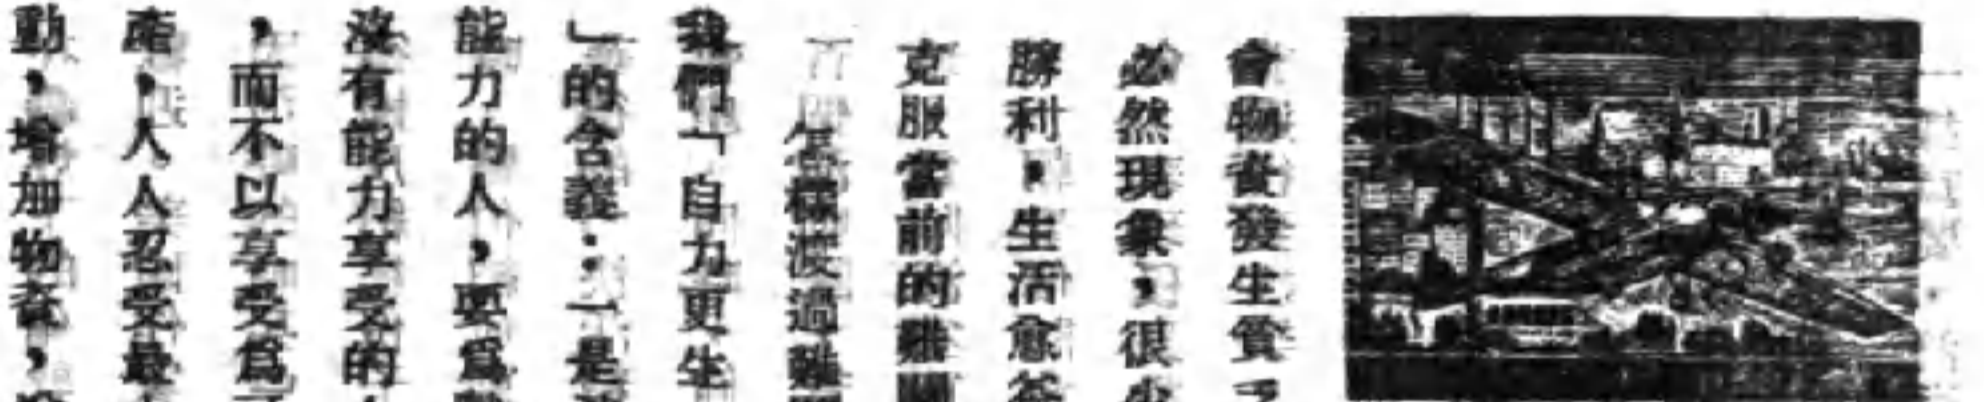 會物資發生質
必然現象，很
勝利，生活愈
克服當前的難關
怎樣渡過難
我們「自力更生
」的含義：一是
能力的人，要爲
沒有能力享受的
，而不以享受爲
產，人人忍受最
動，增加物資，